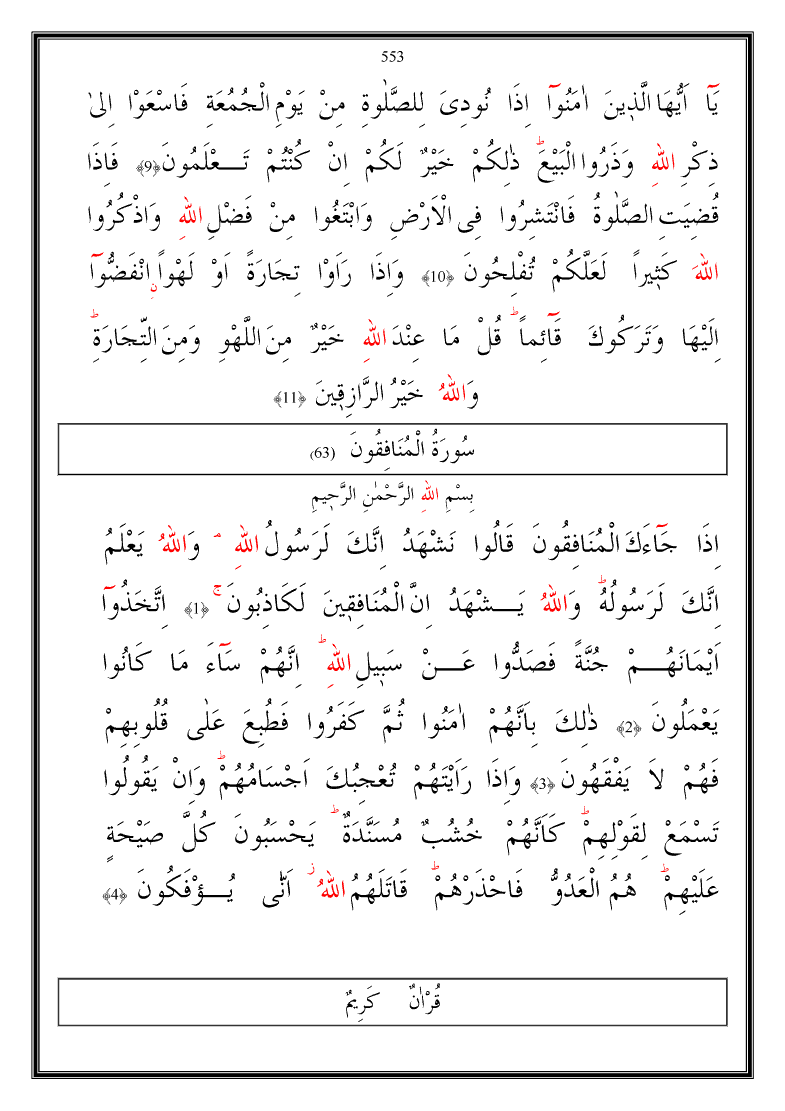 553
يَٓا اَيُّهَا الَّذٖينَ اٰمَنُوٓا اِذَا نُودِىَ لِلصَّلٰوةِ مِنْ يَوْمِ الْجُمُعَةِ فَاسْعَوْا اِلىٰ
ذِكْرِ اللّٰهِ وَذَرُوا الْبَيْعَؕ ذٰلِكُمْ خَيْرٌ لَكُمْ اِنْ كُنْتُمْ تَـــعْلَمُونَ ﴿9﴾ فَاِذَا
قُضِيَتِ الصَّلٰوةُ فَانْتَشِرُوا فِى الْاَرْضِ وَابْتَغُوا مِنْ فَضْلِ اللّٰهِ وَاذْكُرُوا
اللّٰهَ كَثٖيراً لَعَلَّكُمْ تُفْلِحُونَ ﴿10﴾ وَاِذَا رَاَوْا تِجَارَةً اَوْ لَهْواًۨ انْفَضُّوٓا
اِلَيْهَا وَتَرَكُوكَ قَٓائِماًؕ قُلْ مَا عِنْدَ اللّٰهِ خَيْرٌ مِنَ اللَّهْوِ وَمِنَ التِّجَارَةِؕ
وَاللّٰهُ خَيْرُ الرَّازِقٖينَ ﴿11﴾
سُورَةُ الْمُنَافِقُونَ (63)
بِسْمِ اللّٰهِ الرَّحْمٰنِ الرَّحٖيمِ
اِذَا جَٓاءَكَ الْمُنَافِقُونَ قَالُوا نَشْهَدُ اِنَّكَ لَرَسُولُ اللّٰهِۘ وَاللّٰهُ يَعْلَمُ
اِنَّكَ لَرَسُولُهُؕ وَاللّٰهُ يَـــشْهَدُ اِنَّ الْمُنَافِقٖينَ لَكَاذِبُونَۚ ﴿1﴾ اِتَّخَذُوٓا
اَيْمَانَهُـــمْ جُنَّةً فَصَدُّوا عَـــنْ سَبٖيلِ اللّٰهِؕ اِنَّهُمْ سَٓاءَ مَا كَانُوا
يَعْمَلُونَ ﴿2﴾ ذٰلِكَ بِاَنَّهُمْ اٰمَنُوا ثُمَّ كَفَرُوا فَطُبِعَ عَلٰى قُلُوبِهِمْ
فَهُمْ لاَ يَفْقَهُونَ ﴿3﴾ وَاِذَا رَاَيْتَهُمْ تُعْجِبُكَ اَجْسَامُهُمْؕ وَاِنْ يَقُولُوا
تَسْمَعْ لِقَوْلِهِمْؕ كَاَنَّهُمْ خُشُبٌ مُسَنَّدَةٌؕ يَحْسَبُونَ كُلَّ صَيْحَةٍ
عَلَيْهِمْؕ هُمُ الْعَدُوُّ فَاحْذَرْهُمْؕ قَاتَلَهُمُ اللّٰهُؗ اَنّٰى يُـــؤْفَكُونَ ﴿4﴾
قُرْاٰنٌ كَرٖيمٌ